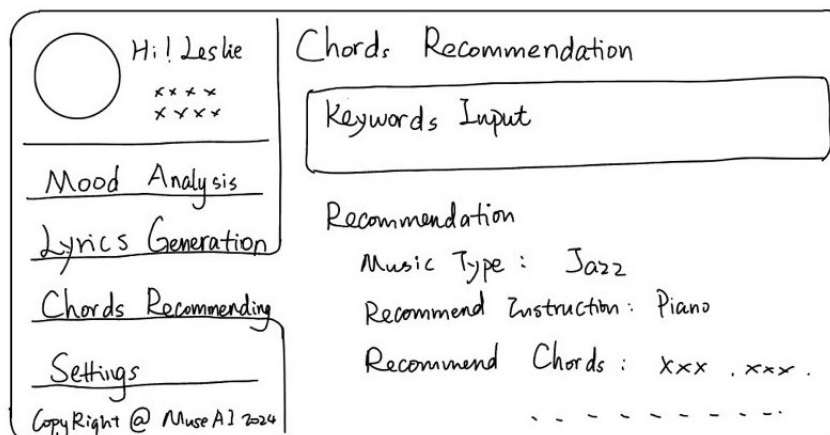 Hi! Leslie
xxxx
xxxx
Mood Analysis
Lyrics Generation
Chords Recommending
Settings
CopyRight @ MuseAI 2024
Chords Recommendation
Keywords Input
Recommendation
Music Type : Jazz
Recommend Instruction: Piano
Recommend Chords : xxx . xxx .
. - - - - - - - - .